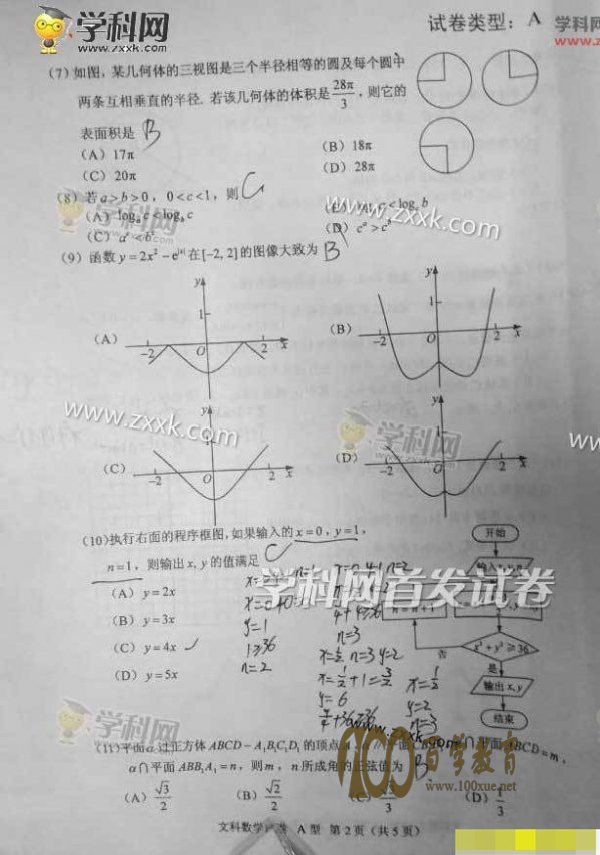 学科网
www.zxxk.com
试卷类型：A
学科网
www.zx
(7) 如图，某几何体的三视图是三个半径相等的圆及每个圆中
两条互相垂直的半径. 若该几何体的体积是 28π/3 ，则它的
表面积是 B
(A) 17π (B) 18π
(C) 20π (D) 28π
(8) 若 a>b>0，0<c<1，则
(A) logₐc<log_bc (B) log_c b
(C) aᶜ<bᶜ (D) cᵃ>cᵇ
学科网
www.zxxk.com
(9) 函数 y=2x²－e^|x| 在[-2, 2]的图像大致为 B
(A) y 1 -2 O 2 x
(B) y 1 -2 O 2 x
www.zxxk.com
学科网
www.zx
(C) y 1 -2 O 2 x
(D) y 1 -2 O 2 x
(10) 执行右面的程序框图, 如果输入的 x=0，y=1，
n=1，则输出 x, y 的值满足 C
(A) y=2x
(B) y=3x
(C) y=4x
(D) y=5x
学科网首发试卷
开始
n=n+1
x²+y²≥36
否
是
输出x,y
结束
y=1
1≥36
n=2
n=3
y=6
x=1/2
y=2
n=3
学科网
(11) 平面α过正方体 ABCD－A₁B₁C₁D₁ 的顶点 平面 ABCD=m，
α∩平面 ABB₁A₁=n，则 m，n 所成角的正弦值为
百学教育
www.100xue.net
(A) √3/2 (B) √2/2 (C) √3/3 (D) 1/3
文科数学 A 型 第2页（共5页）